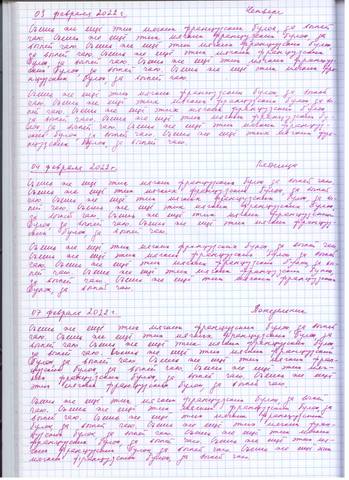 03 февраля 2022 г. Четверг
Съешь же ещё этих мягких французских булок да выпей
чаю. Съешь же ещё этих мягких французских булок да
выпей чаю. Съешь же ещё этих мягких французских булок
да выпей чаю. Съешь же ещё этих мягких французских
булок да выпей чаю. Съешь же ещё этих мягких француз
ских булок да выпей чаю. Съешь же ещё этих мягких фран
цузских булок да выпей чаю.
Съешь же ещё этих мягких французских булок да выпей
чаю. Съешь же ещё этих мягких французских булок да выпей
чаю. Съешь же ещё этих мягких французских булок
да выпей чаю. Съешь же ещё этих мягких французских бу
лок да выпей чаю. Съешь же ещё этих мягких французс
ких булок да выпей чаю. Съешь же ещё этих мягких фран
цузских булок да выпей чаю.
04 февраля 2022 г. Пятница
Съешь же ещё этих мягких французских булок да выпей чаю.
Съешь же ещё этих мягких французских булок да выпей
чаю. Съешь же ещё этих мягких французских булок да вы
пей чаю. Съешь же ещё этих мягких французских булок
да выпей чаю. Съешь же ещё этих мягких французских
булок да выпей чаю. Съешь же ещё этих мягких француз
ских булок да выпей чаю.
Съешь же ещё этих мягких французских булок да выпей
чаю. Съешь же ещё этих мягких французских булок да выпей
чаю. Съешь же ещё этих мягких французских булок да вы
пей чаю. Съешь же ещё этих мягких французских булок
да выпей чаю. Съешь же ещё этих мягких французских
булок да выпей чаю.
07 февраля 2022 г. Понедельник
Съешь же ещё этих мягких французских булок да выпей
чаю. Съешь же ещё этих мягких французских булок да
выпей чаю. Съешь же ещё этих мягких французских булок
да выпей чаю. Съешь же ещё этих мягких французских
булок да выпей чаю. Съешь же ещё этих мягких фран
цузских булок да выпей чаю. Съешь же ещё этих мяг
ких французских булок да выпей чаю. Съешь же ещё
этих мягких французских булок да выпей чаю.
Съешь же ещё этих мягких французских булок да выпей
чаю. Съешь же ещё этих мягких французских булок да
выпей чаю. Съешь же ещё этих мягких французских
булок да выпей чаю. Съешь же ещё этих мягких фран
цузских булок да выпей чаю. Съешь же ещё этих мягких
французских булок да выпей чаю. Съешь же ещё этих мяг
ких французских булок да выпей чаю. Съешь же ещё этих
мягких французских булок да выпей чаю.